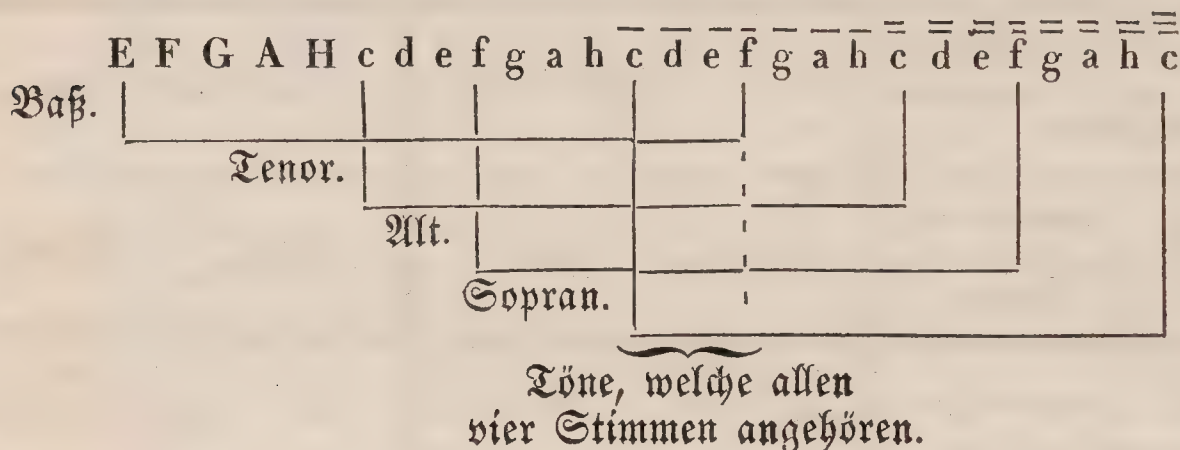 E F G A H c d e f g a h c̅ d̅ e̅ f̅ g̅ a̅ h̅ c̿ d̿ e̿ f̿ g̿ a̿ h̿ c̿̅
Baß.
Tenor.
Alt.
Sopran.
Töne, welche allen
vier Stimmen angehören.